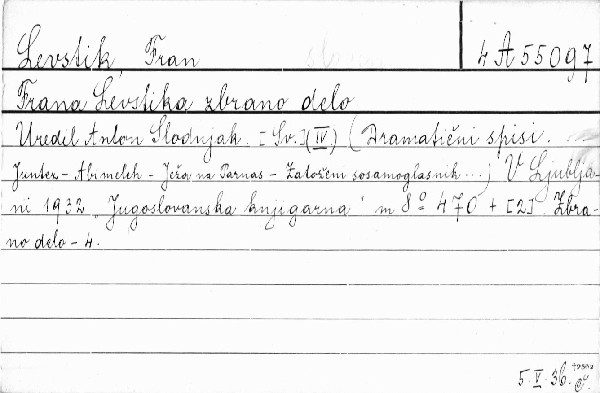 Levstik, Fran
4 A 55097
Frana Levstika zbrano delo
Uredil Anton Slodnjak. [Sv.] (IV.) (Dramatični spisi.
Junter - Abimeleh - Ježa na Parnas - Zatoženi sosamoglasnik...) V Ljublja-
ni 1932 "Jugoslovanska knjigarna" m 8° 470 + [2]. Zbra-
no delo - 4.
5. V. 36.